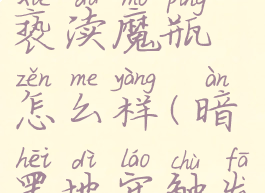 xiè dú mó píng
亵渎魔瓶
zěn me yàng àn
怎么样(暗
hēi dì láo chù fā
黑地牢触发